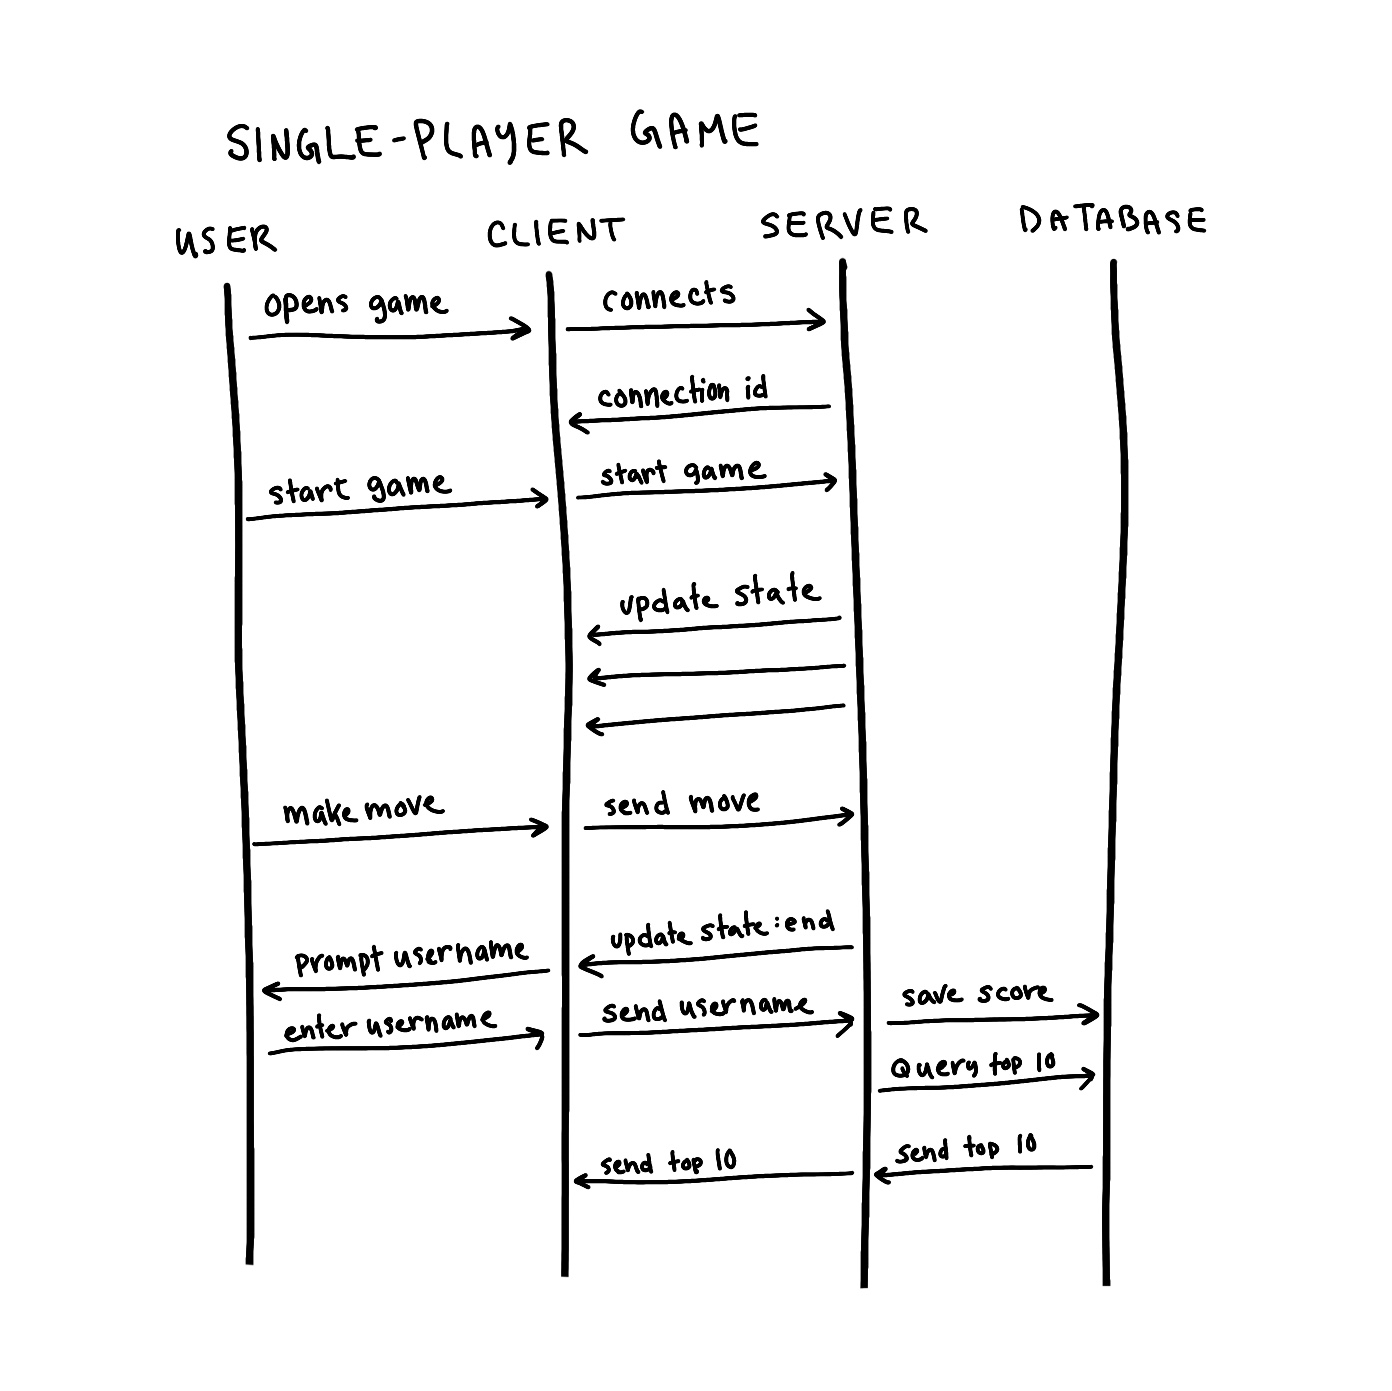 SINGLE-PLAYER GAME
USER
CLIENT
SERVER
DATABASE
opens game
connects
connection id
start game
start game
update state
make move
send move
update state:end
prompt username
send username
save score
enter username
Query top 10
send top 10
send top 10